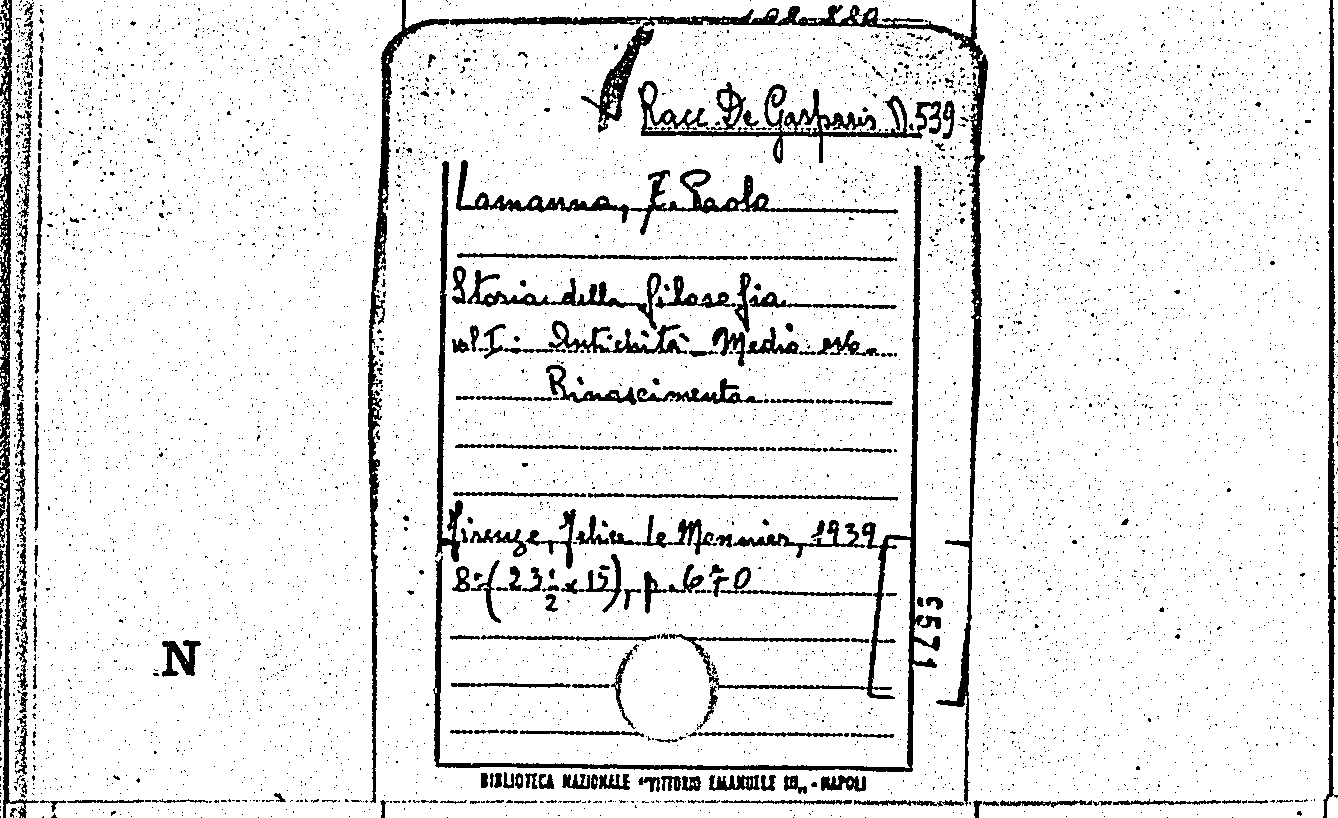 Racc. De Gasparis N. 539
Lamanna, E. Paolo
Storia della filosofia
vol I: Antichità - Medio evo -
Rinascimento.
Firenze, Felice le Monnier, 1939
8° (23 1/2 x 15), p. 670
5571
N
BIBLIOTECA NAZIONALE "VITTORIO EMANUELE III„ - NAPOLI